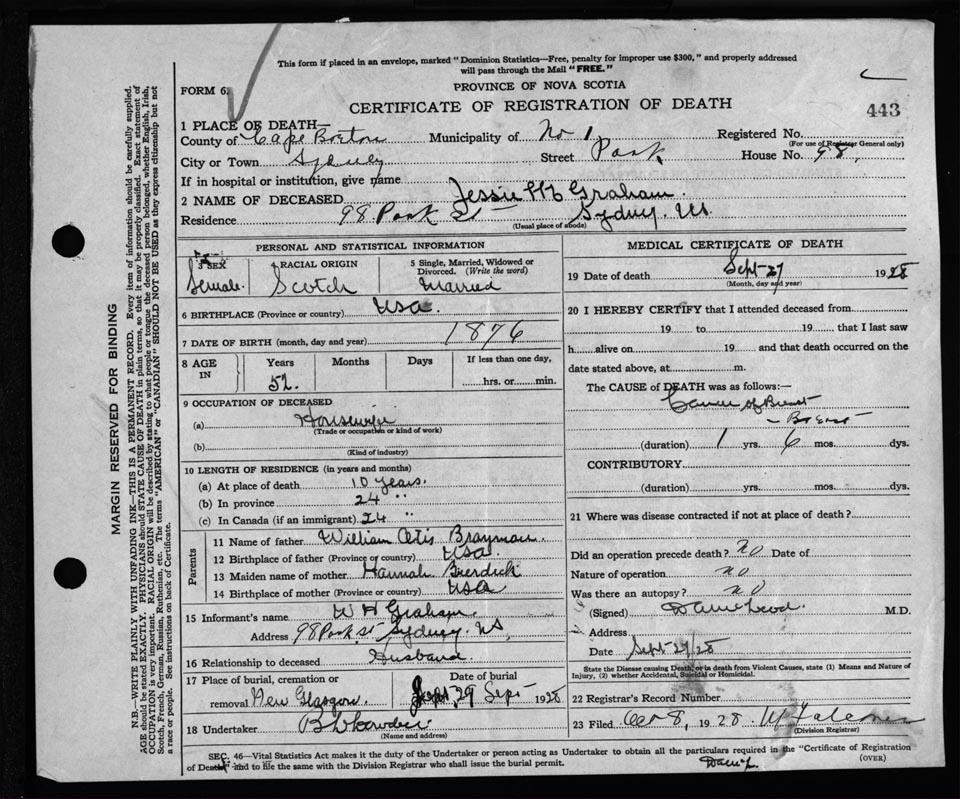 This form if placed in an envelope, marked "Dominion Statistics—Free, penalty for improper use $300," and properly addressed
will pass through the Mail "FREE."
FORM 6.
PROVINCE OF NOVA SCOTIA
CERTIFICATE OF REGISTRATION OF DEATH
443
1 PLACE OF DEATH—
County of Cape Breton Municipality of No 1 Registered No.
(For use of Registrar General only)
City or Town Sydney Street Park House No. 98,
If in hospital or institution, give name
2 NAME OF DECEASED Jessie Graham.
Residence 98 Park St Sydney. N.S.
(Usual place of abode)
PERSONAL AND STATISTICAL INFORMATION
3 SEX 4 RACIAL ORIGIN 5 Single, Married, Widowed or Divorced. (Write the word)
Female. Scotch Married
6 BIRTHPLACE (Province or country) USA.
7 DATE OF BIRTH (month, day and year) 1876
8 AGE IN Years Months Days If less than one day,
52. hrs. or min.
9 OCCUPATION OF DECEASED
(a) Housewife
(Trade or occupation or kind of work)
(b)
(Kind of industry)
10 LENGTH OF RESIDENCE (in years and months)
(a) At place of death 10 years.
(b) In province 24 "
(c) In Canada (if an immigrant) 24 "
Parents
11 Name of father William Otis Brayman.
12 Birthplace of father (Province or country) USA.
13 Maiden name of mother Hannah
14 Birthplace of mother (Province or country) USA
15 Informant's name W H Graham
Address 98 Park St Sydney. NS,
16 Relationship to deceased Husband.
17 Place of burial, cremation or removal New Glasgow. Date of burial Sept 29 Sept 1928
18 Undertaker
(Name and address)
MEDICAL CERTIFICATE OF DEATH
19 Date of death Sept 27 1928
(Month, day and year)
20 I HEREBY CERTIFY that I attended deceased from
19 to 19 that I last saw
h alive on 19 and that death occurred on the
date stated above, at m.
The CAUSE of DEATH was as follows:—
Cancer of Breast
- Breast
(duration) 1 yrs. 6 mos. dys.
CONTRIBUTORY
(duration) yrs. mos. dys.
21 Where was disease contracted if not at place of death?
Did an operation precede death? No Date of
Nature of operation No
Was there an autopsy? No
(Signed) M.D.
Address
Date Sept 29/28
State the Disease causing Death, or in death from Violent Causes, state (1) Means and Nature of
Injury, (2) whether Accidental, Suicidal or Homicidal.
22 Registrar's Record Number
23 Filed Oct 8, 1928
(Division Registrar)
SEC. 46—Vital Statistics Act makes it the duty of the Undertaker or person acting as Undertaker to obtain all the particulars required in the "Certificate of Registration
of Death" and to file the same with the Division Registrar who shall issue the burial permit.
(OVER)
MARGIN RESERVED FOR BINDING
N.B.—WRITE PLAINLY WITH UNFADING INK—THIS IS A PERMANENT RECORD. Every item of information should be carefully supplied.
AGE should be stated EXACTLY. PHYSICIANS should STATE CAUSE OF DEATH in plain terms, so that it may be properly classified. Exact statement of
OCCUPATION is very important. RACIAL ORIGIN will be described by stating to what people or tongue the deceased person belonged, whether English, Irish,
Scotch, French, German, Russian, Ruthenian, etc. The terms "AMERICAN" or "CANADIAN" SHOULD NOT BE USED as they express citizenship but not
a race or people. See instructions on back of Certificate.